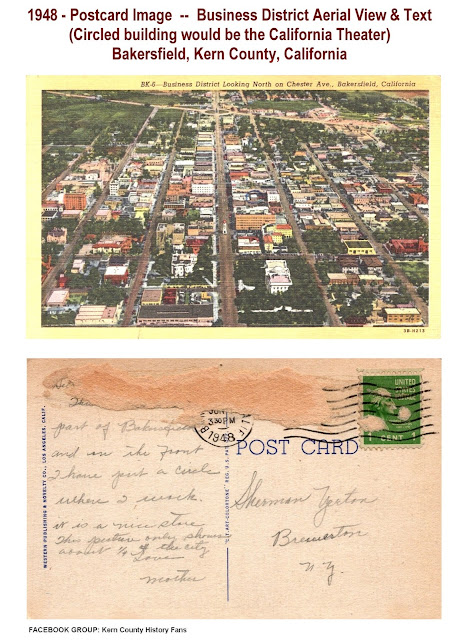 1948 - Postcard Image -- Business District Aerial View & Text
(Circled building would be the California Theater)
Bakersfield, Kern County, California
BK-6—Business District Looking North on Chester Ave., Bakersfield, California
5B-H213
part of Bakersfield
and in the front
I have put a circle
where I work.
it is a nice store
This picture only shows
about ¼ of the city
Love
Mother
WESTERN PUBLISHING & NOVELTY CO., LOS ANGELES, CALIF.
JUN
3 30 PM
1948
CALIF
POST CARD
UNITED
STATES
1 CENT
Sherman
Brewerton
N.Y.
FACEBOOK GROUP: Kern County History Fans